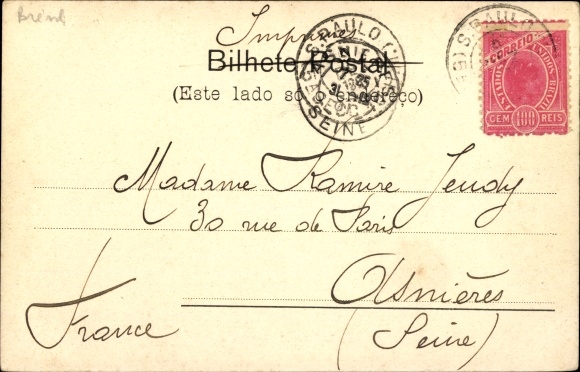 Brésil
Imprimés
Bilhete Postal
(Este lado só o endereço)
S. PAULO
SEINE
CORREIO
ESTADOS UNIDOS DO BRAZIL
CEM 100 REIS
Madame Ramire Jendy
30 rue de Paris
Asnières
(Seine)
France